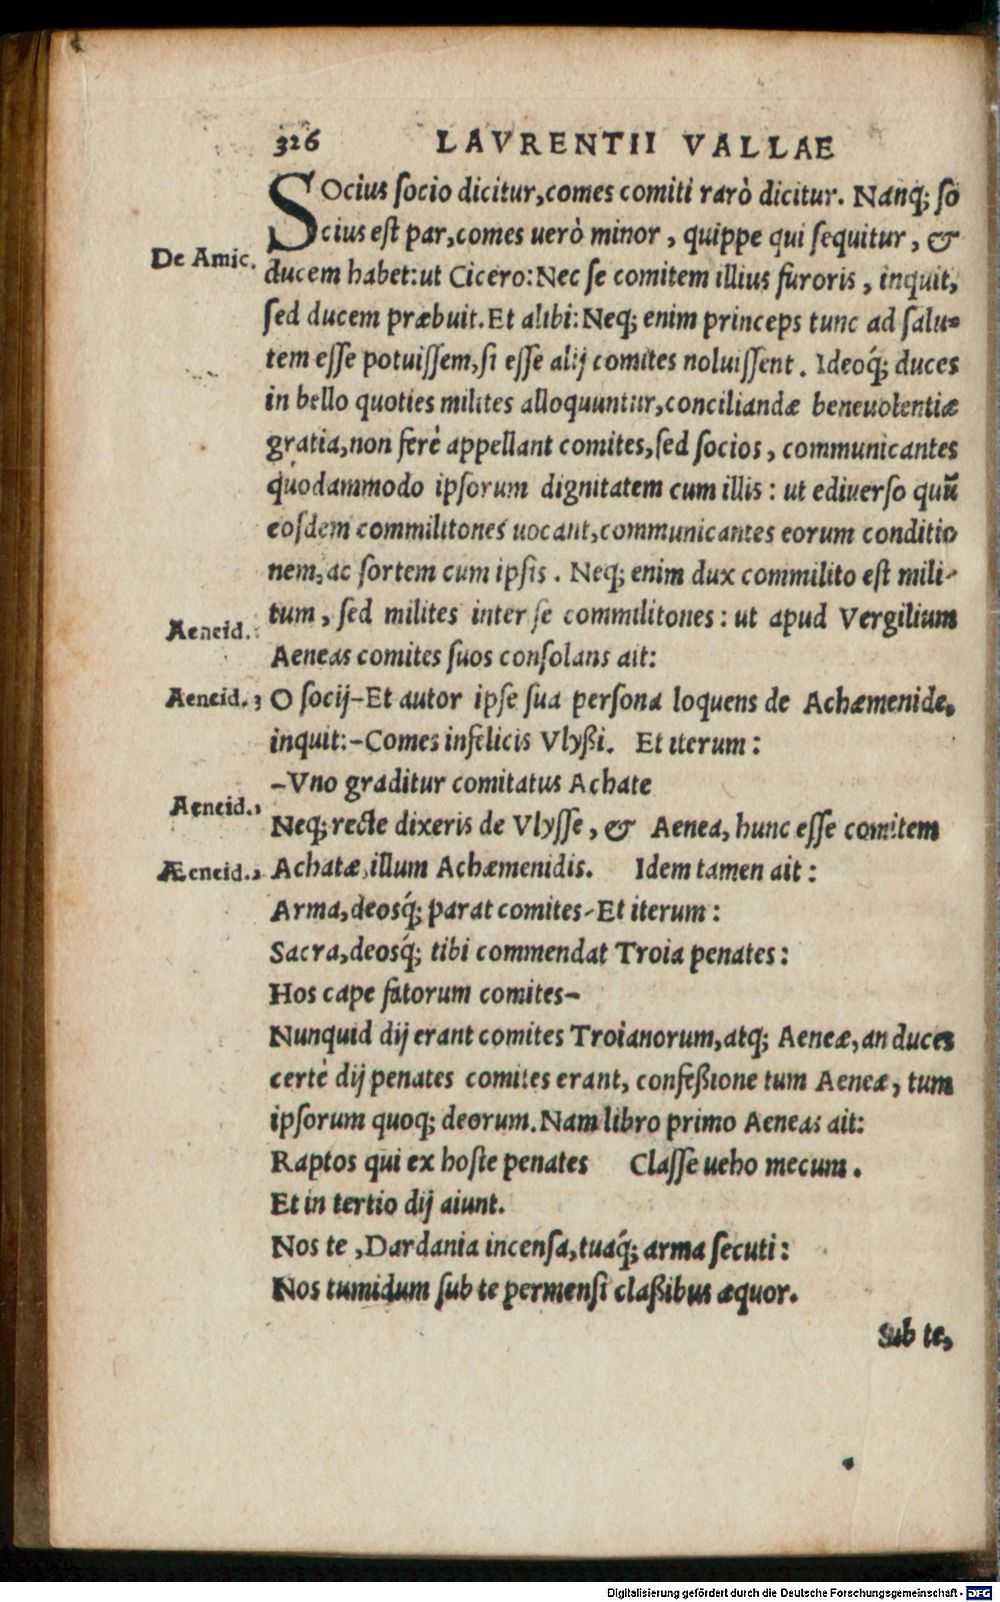 326 LAVRENTII VALLAE
SOcius socio dicitur, comes comiti rarò dicitur. Nanq; so
cius est par, comes uerò minor, quippe qui sequitur, &
De Amic.
ducem habet: ut Cicero: Nec se comitem illius furoris, inquit,
sed ducem præbuit. Et alibi: Neq; enim princeps tunc ad salu=
tem esse potuissem, si esse alij comites noluissent. Ideoq́; duces
in bello quoties milites alloquuntur, conciliandæ beneuolentiæ
gratia, non ferè appellant comites, sed socios, communicantes
quodammodo ipsorum dignitatem cum illis: ut ediuerso quū
eosdem commilitones uocant, communicantes eorum conditio
nem, ac sortem cum ipsis. Neq; enim dux commilito est mili-
tum, sed milites inter se commilitones: ut apud Vergilium
Aeneid.
Aeneas comites suos consolans ait:
Aeneid. 3 O socij-Et autor ipse sua persona loquens de Achæmenide,
inquit:-Comes infelicis Vlyßi. Et iterum:
-Vno graditur comitatus Achate
Aeneid. 1
Neq; recte dixeris de Vlysse, & Aenea, hunc esse comitem
Æneid. 2 Achatæ, illum Achæmenidis. Idem tamen ait:
Arma, deosq́; parat comites-Et iterum:
Sacra, deosq́; tibi commendat Troia penates:
Hos cape fatorum comites-
Nunquid dij erant comites Troianorum, atq; Aeneæ, an duces
certè dij penates comites erant, confeßione tum Aeneæ, tum
ipsorum quoq; deorum. Nam libro primo Aeneas ait:
Raptos qui ex hoste penates Classe ueho mecum.
Et in tertio dij aiunt.
Nos te, Dardania incensa, tuaq́; arma secuti:
Nos tumidum sub te permensi claßibus æquor.
Sub te,
Digitalisierung gefördert durch die Deutsche Forschungsgemeinschaft - DFG